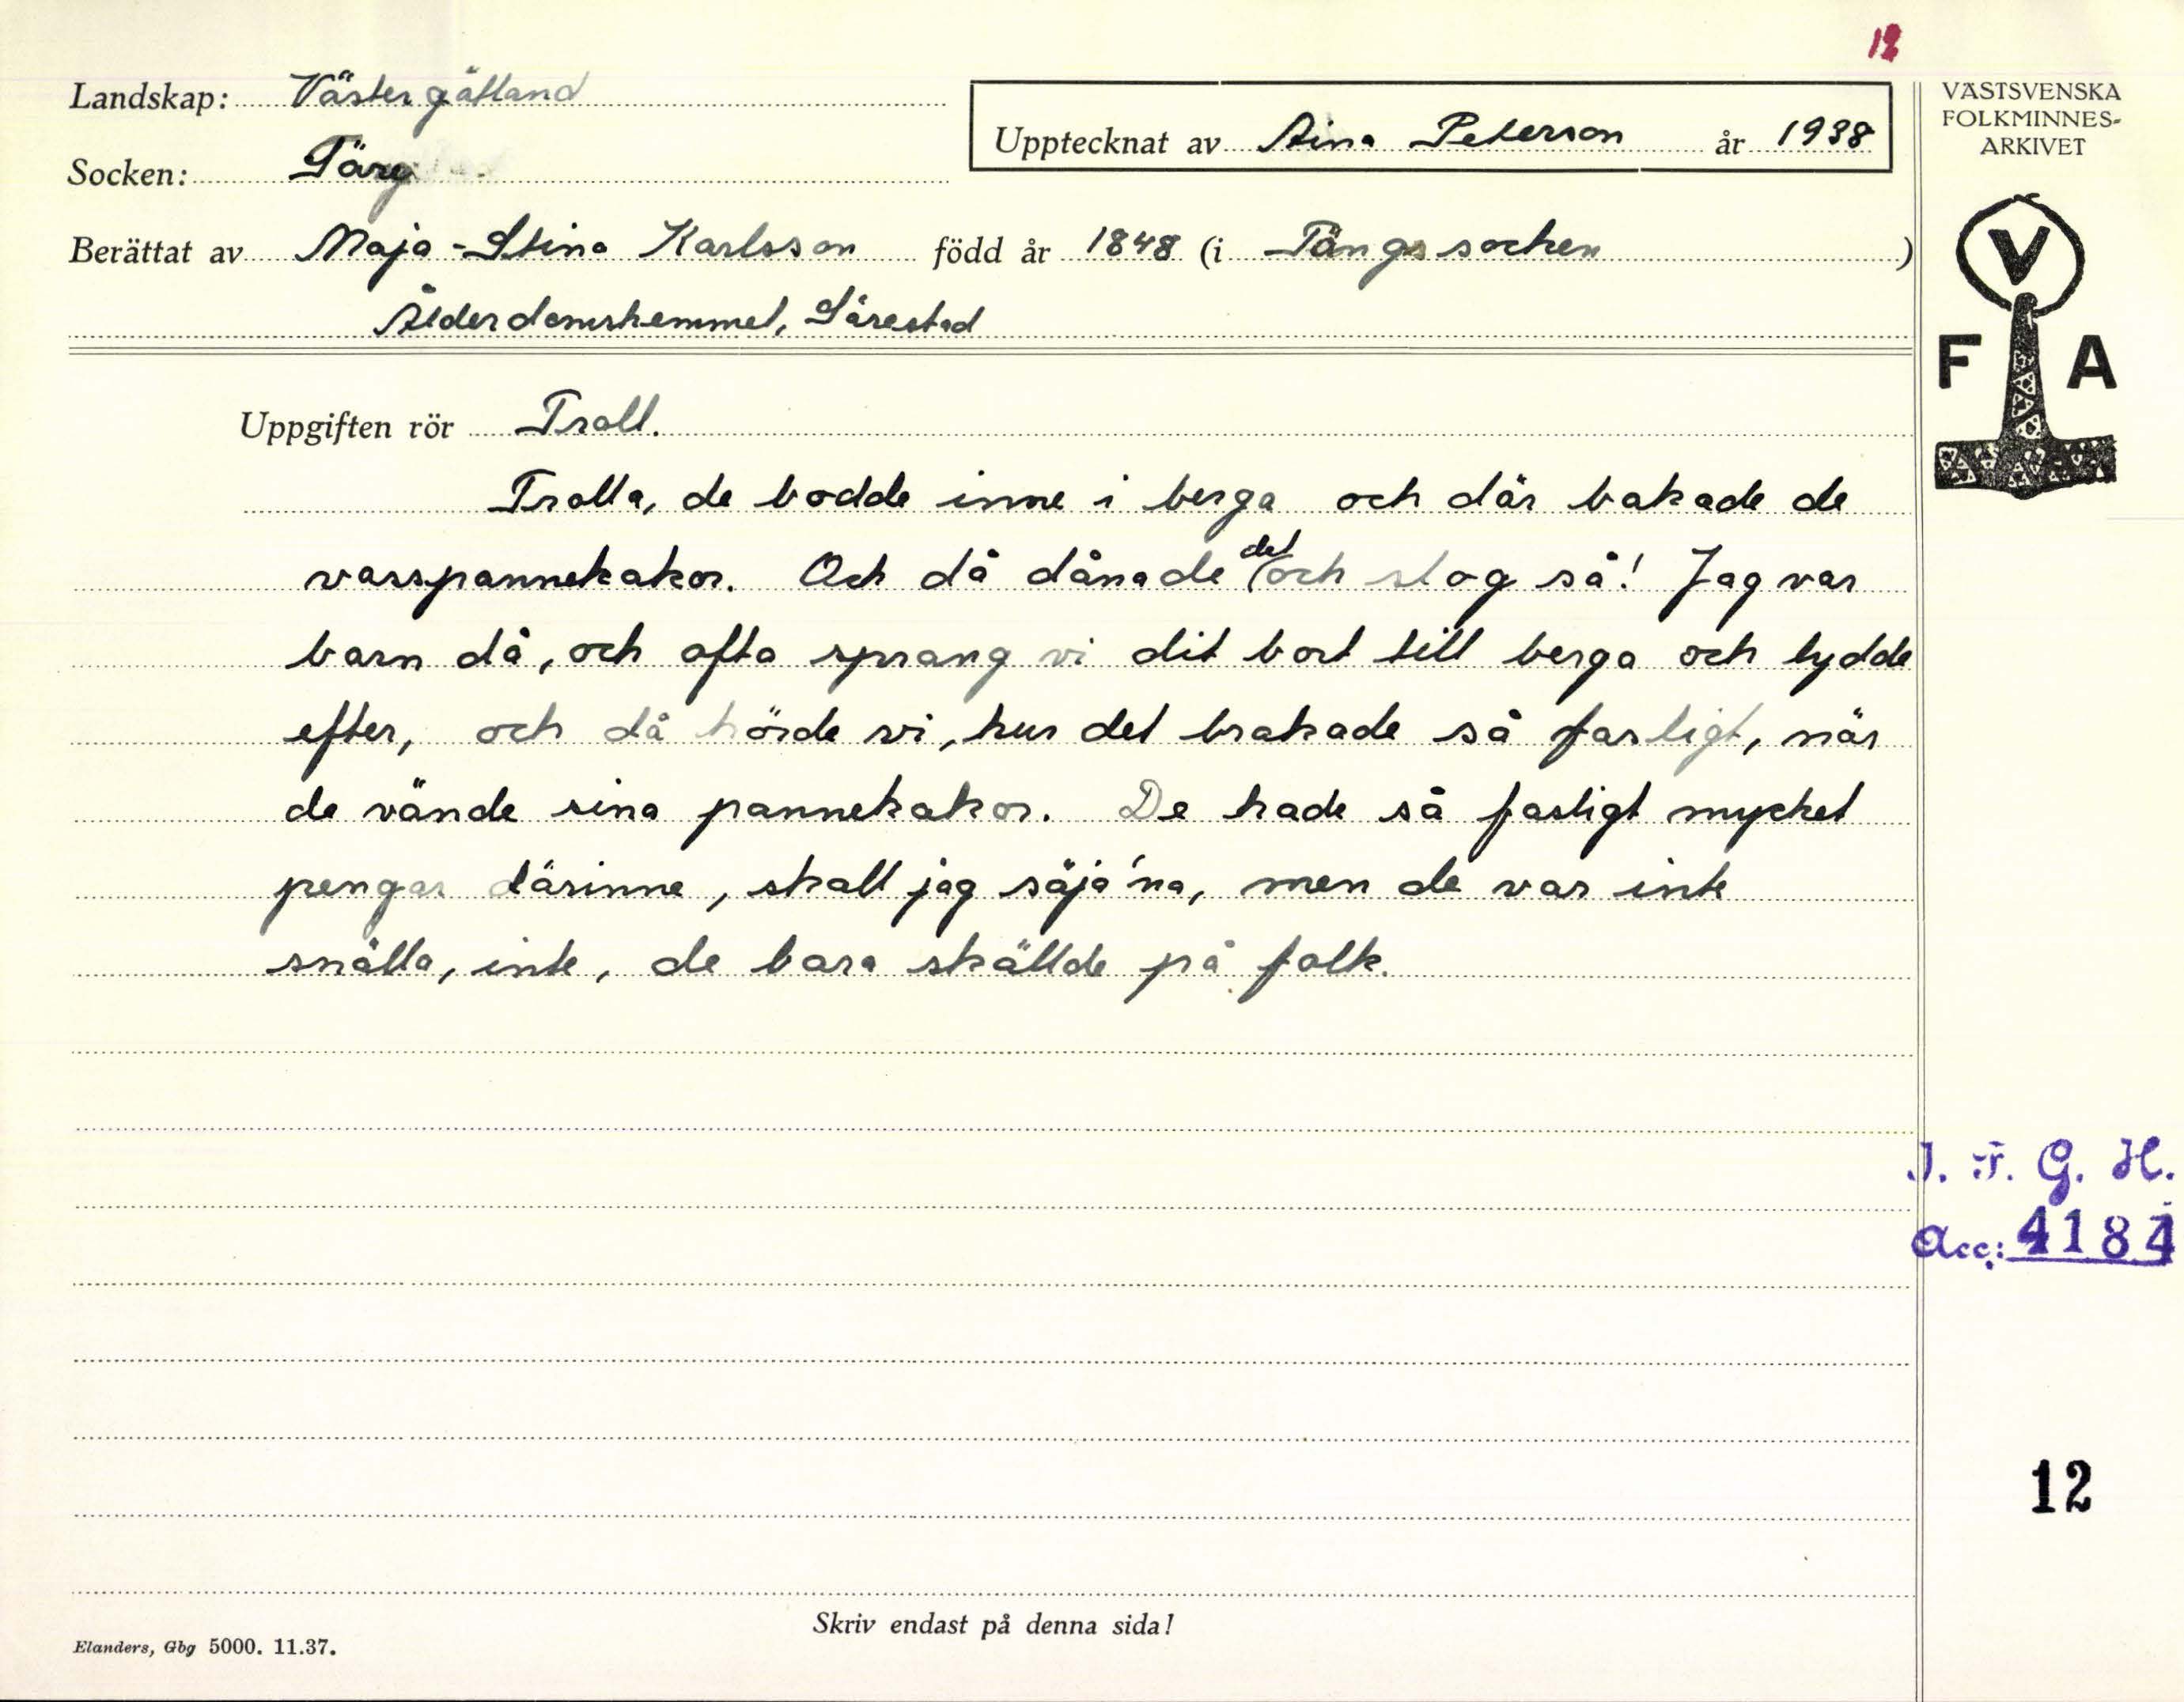 12
Landskap: Västergötland
Upptecknat av Aina Peterson år 1938
Socken: Täng
Berättat av Maja-Stina Karlsson född år 1848 (i Tängs socken)
Ålderdomshemmet, Särestad
Uppgiften rör Troll.
Trolla, de bodde inne i berga och där bakade de
vasspannekakor. Och då dånade det och slog så! Jag var
barn då, och ofta sprang vi dit bort till berga och lydde
efter, och då hörde vi, hur det brakade så farligt, när
de vände sina pannekakor. De hade så fasligt mycket
pengar därinne, skall jag säja'na, men de var inte
snälla, inte, de bara skällde på folk.
Skriv endast på denna sida!
Elanders, Gbg 5000. 11.37.
VÄSTSVENSKA
FOLKMINNES-
ARKIVET
V
F A
I. F. G. H.
Acc: 4184
12